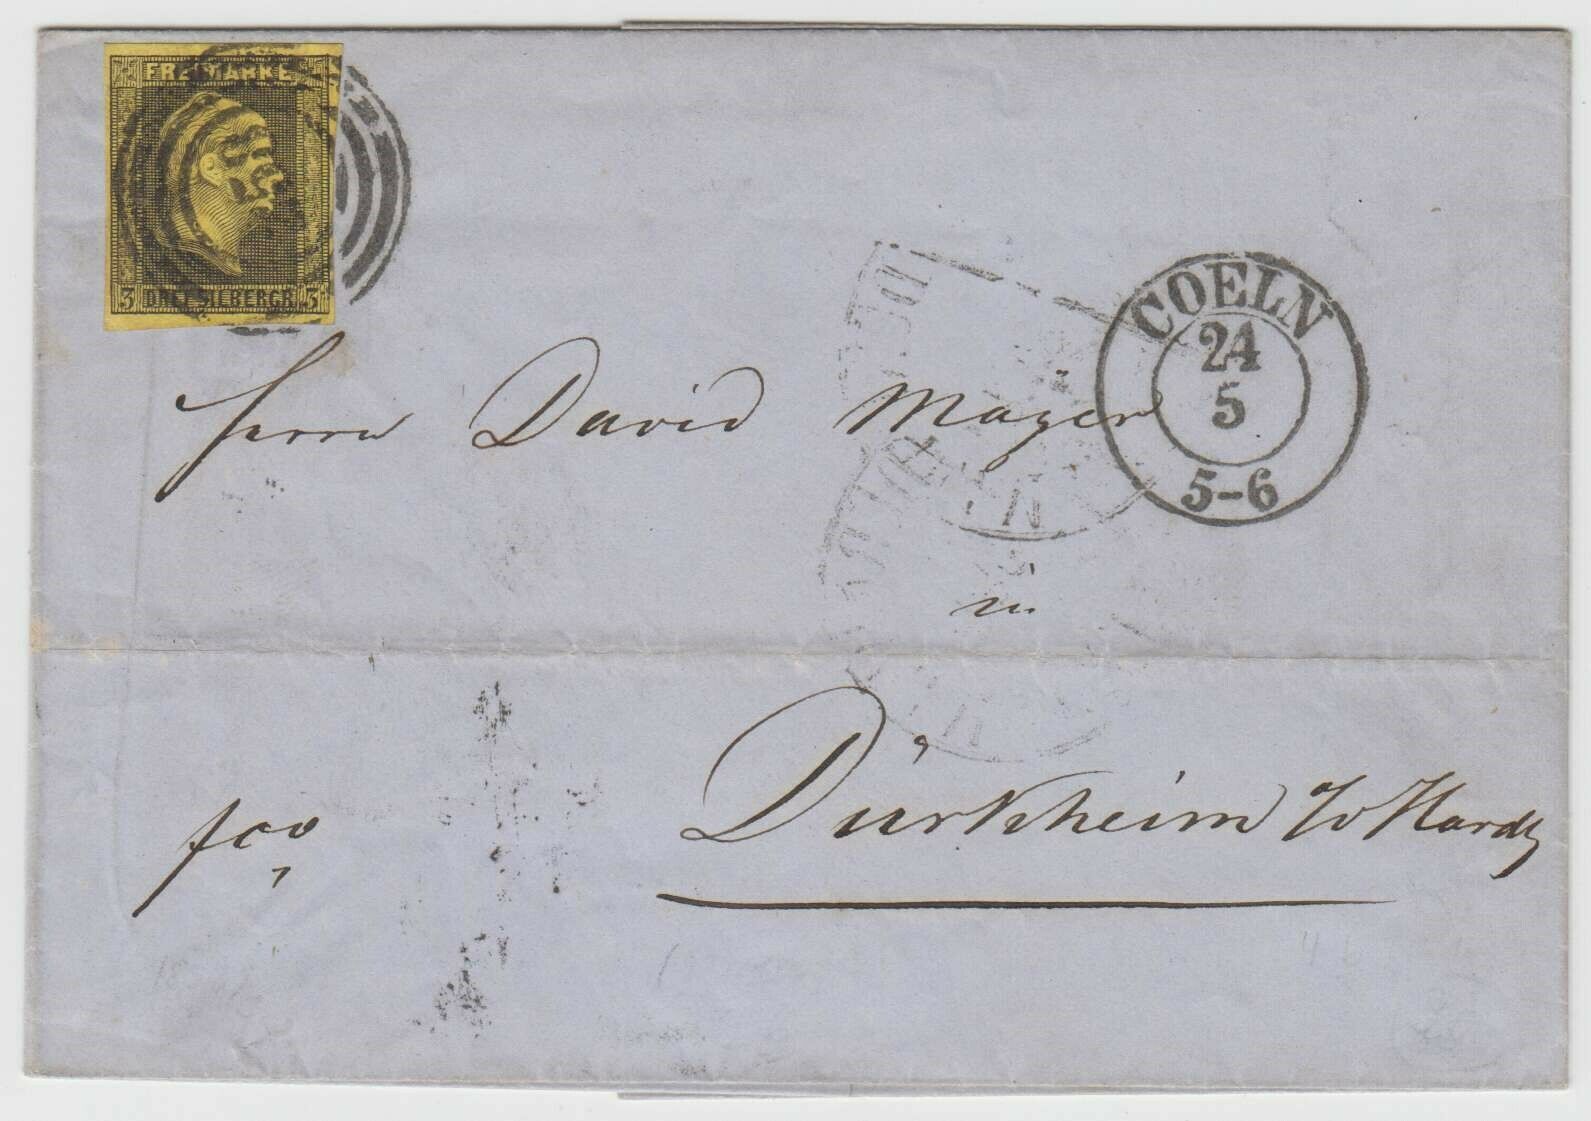 FREIMARKE
3 DREI SILBERGR. 3
COELN
24
5
5-6
Herrn David Mayer
in
Dürkheim a/d Hardt
fco